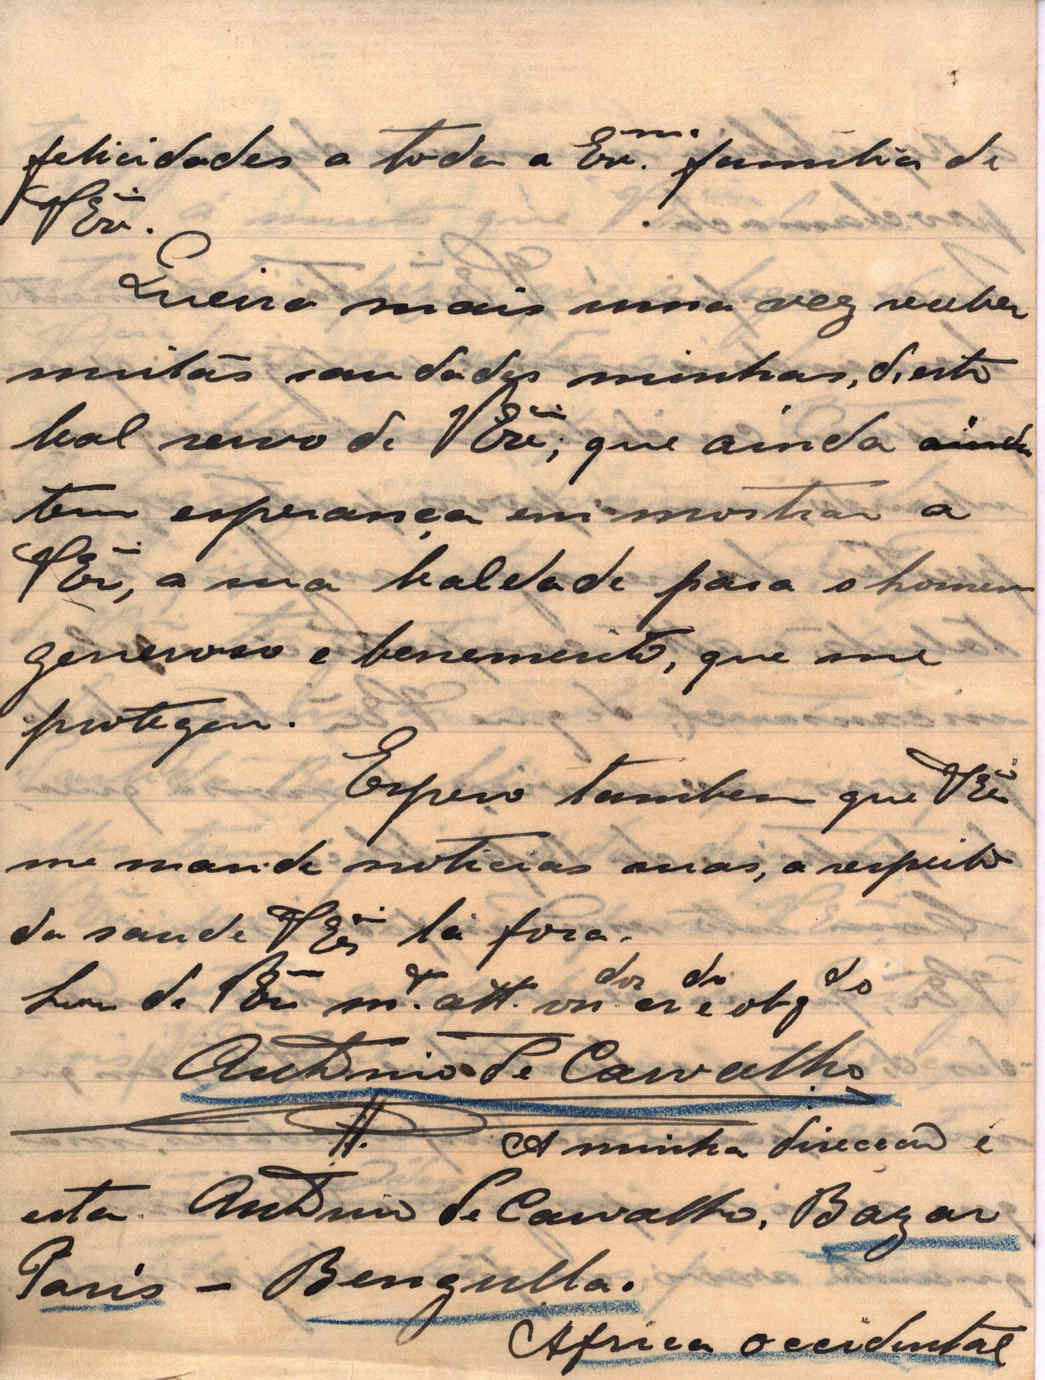 felicidades a toda a Exma. familia de
V Exa.
Queira mais uma vez receber
muitas saudades minhas, d'este
leal servo de V Exa; que ainda ainda
tem esperança em mostrar a
V Exa, a sua lealdade para o homem
generoso e benemerito, que me
protegeu.
Espero tambem que V Exa
me mande noticias suas, a respeito
da saude V Exa lá fóra.
Sou de V Exa m.to att. vndor crdo e obgdo
Antonio de Carvalho
A minha direcção é
esta Antonio de Carvalho, Bazar
Paris – Benguella.
Africa Occidental